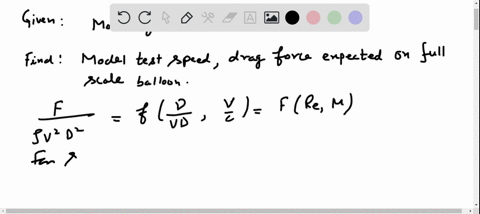 Given:
Find: Model test speed, drag force expected on full
scale balloon.
F / ρV²D² = f(D/VD, V/c) = F(Re, M)